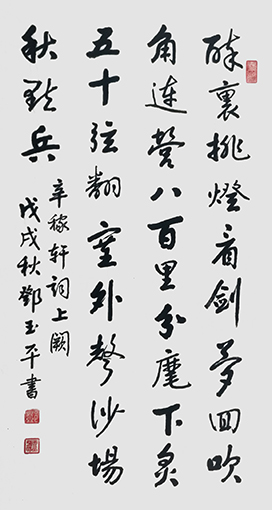 醉裏挑燈看劍夢回吹
角連營八百里分麾下炙
五十弦翻塞外聲沙場
秋點兵
辛稼軒詞上闕
戊戌秋鄧玉平書